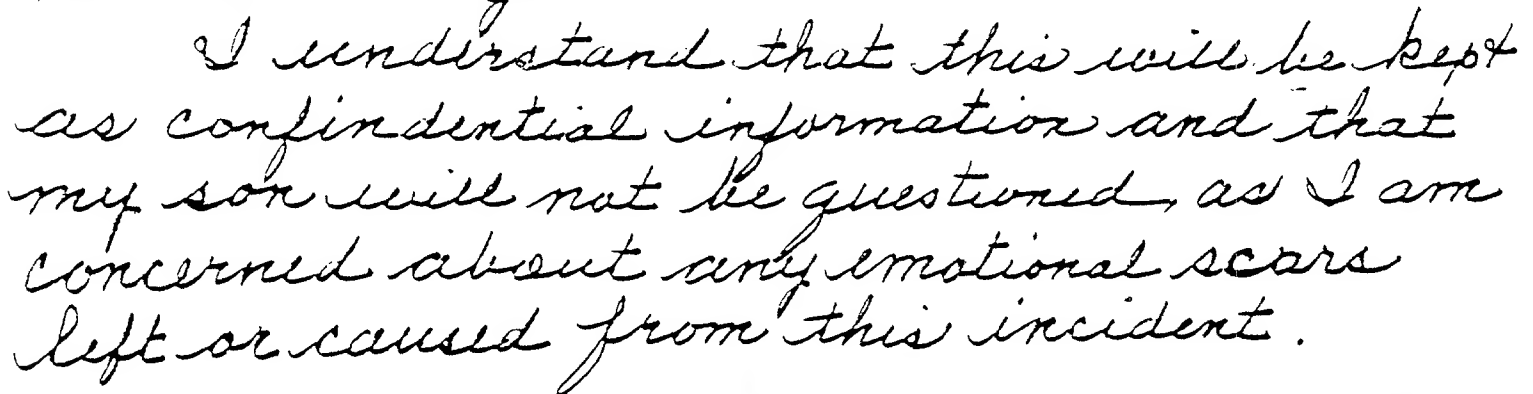 I understand that this will be kept
as confindential information and that
my son will not be questioned, as I am
concerned about any emotional scars
left or caused from this incident.